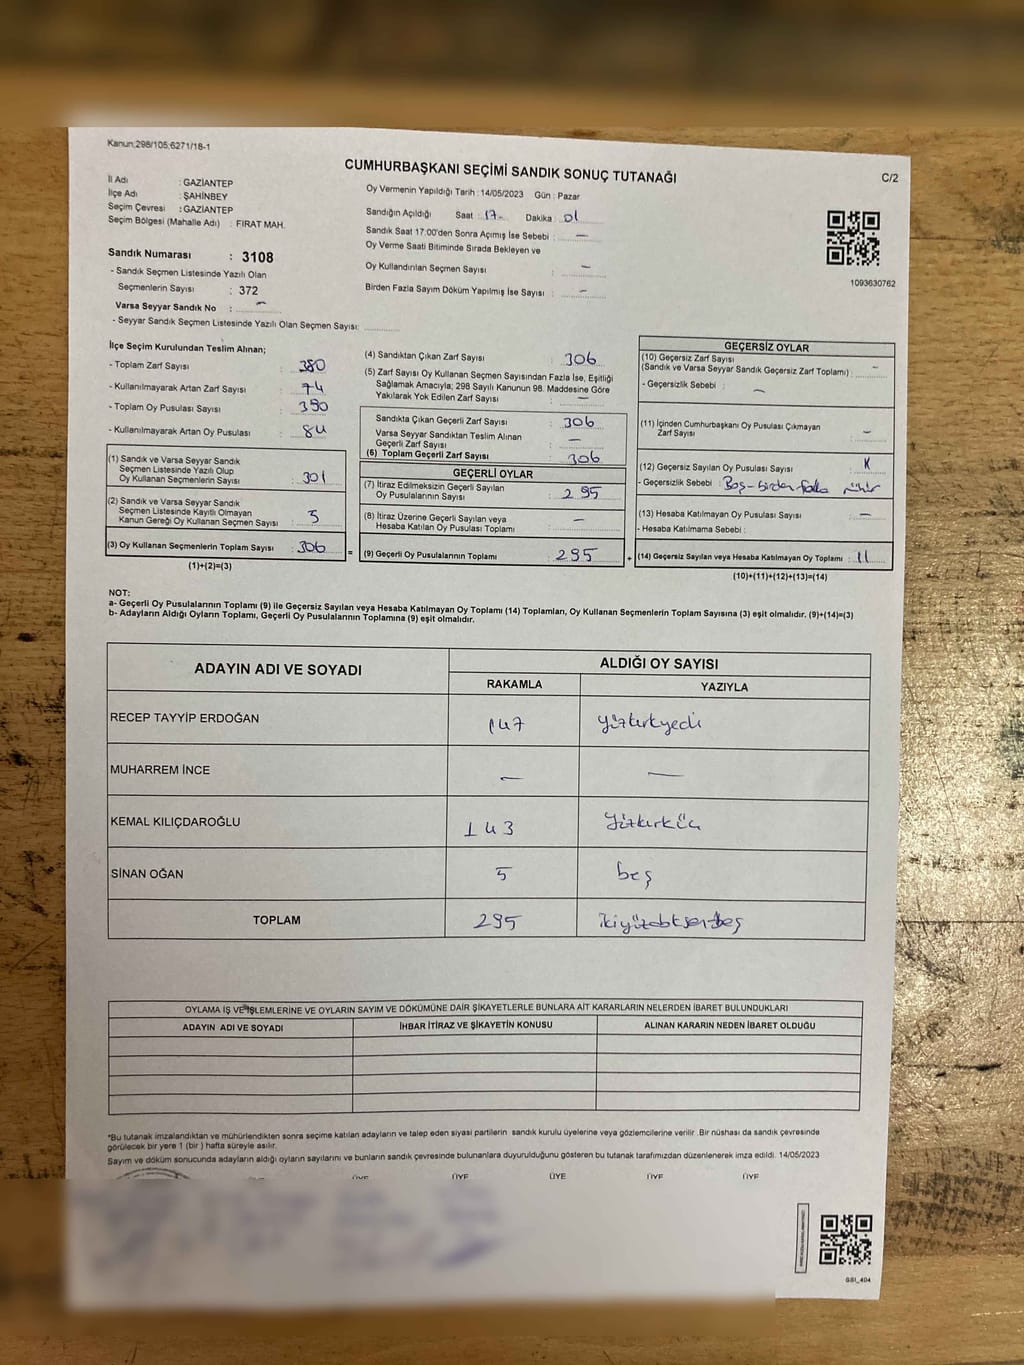 Kanun:298/105;6271/18-1
CUMHURBAŞKANI SEÇİMİ SANDIK SONUÇ TUTANAĞI
C/2
İl Adı : GAZİANTEP
İlçe Adı : ŞAHİNBEY
Seçim Çevresi : GAZİANTEP
Seçim Bölgesi (Mahalle Adı) : FIRAT MAH.
Oy Vermenin Yapıldığı Tarih : 14/05/2023 Gün : Pazar
Sandığın Açıldığı Saat : 17- Dakika : 01
Sandık Saat 17.00'den Sonra Açımış İse Sebebi : —
Oy Verme Saati Bitiminde Sırada Bekleyen ve
Oy Kullandırılan Seçmen Sayısı : —
Birden Fazla Sayım Döküm Yapılmış İse Sayısı : —
1093630762
Sandık Numarası : 3108
- Sandık Seçmen Listesinde Yazılı Olan
Seçmenlerin Sayısı : 372
Varsa Seyyar Sandık No : —
- Seyyar Sandık Seçmen Listesinde Yazılı Olan Seçmen Sayısı:
İlçe Seçim Kurulundan Teslim Alınan;
- Toplam Zarf Sayısı : 380
- Kullanılmayarak Artan Zarf Sayısı : 74
- Toplam Oy Pusulası Sayısı : 390
- Kullanılmayarak Artan Oy Pusulası : 84
(1) Sandık ve Varsa Seyyar Sandık
Seçmen Listesinde Yazılı Olup
Oy Kullanan Seçmenlerin Sayısı : 301
(2) Sandık ve Varsa Seyyar Sandık
Seçmen Listesinde Kayıtlı Olmayan
Kanun Gereği Oy Kullanan Seçmen Sayısı : 5
(3) Oy Kullanan Seçmenlerin Toplam Sayısı : 306
(1)+(2)=(3)
(4) Sandıktan Çıkan Zarf Sayısı : 306
(5) Zarf Sayısı Oy Kullanan Seçmen Sayısından Fazla İse, Eşitliği
Sağlamak Amacıyla; 298 Sayılı Kanunun 98. Maddesine Göre
Yakılarak Yok Edilen Zarf Sayısı : —
Sandıkta Çıkan Geçerli Zarf Sayısı : 306
Varsa Seyyar Sandıktan Teslim Alınan
Geçerli Zarf Sayısı : —
(6) Toplam Geçerli Zarf Sayısı : 306
GEÇERLİ OYLAR
(7) İtiraz Edilmeksizin Geçerli Sayılan
Oy Pusulalarının Sayısı : 295
(8) İtiraz Üzerine Geçerli Sayılan veya
Hesaba Katılan Oy Pusulası Toplamı : —
= (9) Geçerli Oy Pusulalarının Toplamı : 295
GEÇERSİZ OYLAR
(10) Geçersiz Zarf Sayısı
(Sandık ve Varsa Seyyar Sandık Geçersiz Zarf Toplamı) : —
- Geçersizlik Sebebi : —
(11) İçinden Cumhurbaşkanı Oy Pusulası Çıkmayan
Zarf Sayısı : —
(12) Geçersiz Sayılan Oy Pusulası Sayısı :
- Geçersizlik Sebebi : Boş-birden fazla mühür
(13) Hesaba Katılmayan Oy Pusulası Sayısı : —
- Hesaba Katılmama Sebebi :
+ (14) Geçersiz Sayılan veya Hesaba Katılmayan Oy Toplamı : 11
(10)+(11)+(12)+(13)=(14)
NOT:
a- Geçerli Oy Pusulalarının Toplamı (9) ile Geçersiz Sayılan veya Hesaba Katılmayan Oy Toplamı (14) Toplamları, Oy Kullanan Seçmenlerin Toplam Sayısına (3) eşit olmalıdır. (9)+(14)=(3)
b- Adayların Aldığı Oyların Toplamı, Geçerli Oy Pusulalarının Toplamına (9) eşit olmalıdır.
ADAYIN ADI VE SOYADI
ALDIĞI OY SAYISI
RAKAMLA YAZIYLA
RECEP TAYYİP ERDOĞAN 147 yüzkırkyedi
MUHARREM İNCE — —
KEMAL KILIÇDAROĞLU 143 yüzkırküç
SİNAN OĞAN 5 beş
TOPLAM 295 ikiyüzdoksanbeş
OYLAMA İŞ VE İŞLEMLERİNE VE OYLARIN SAYIM VE DÖKÜMÜNE DAİR ŞİKAYETLERLE BUNLARA AİT KARARLARIN NELERDEN İBARET BULUNDUKLARI
ADAYIN ADI VE SOYADI İHBAR İTİRAZ VE ŞİKAYETİN KONUSU ALINAN KARARIN NEDEN İBARET OLDUĞU
*Bu tutanak imzalandıktan ve mühürlendikten sonra seçime katılan adayların ve talep eden siyasi partilerin sandık kurulu üyelerine veya gözlemcilerine verilir .Bir nüshası da sandık çevresinde
görülecek bir yere 1 (bir ) hafta süreyle asılır.
Sayım ve döküm sonucunda adayların aldığı oyların sayılarını ve bunların sandık çevresinde bulunanlara duyurulduğunu gösteren bu tutanak tarafımızdan düzenlenerek imza edildi. 14/05/2023
ÜYE ÜYE ÜYE ÜYE ÜYE
GSI_404